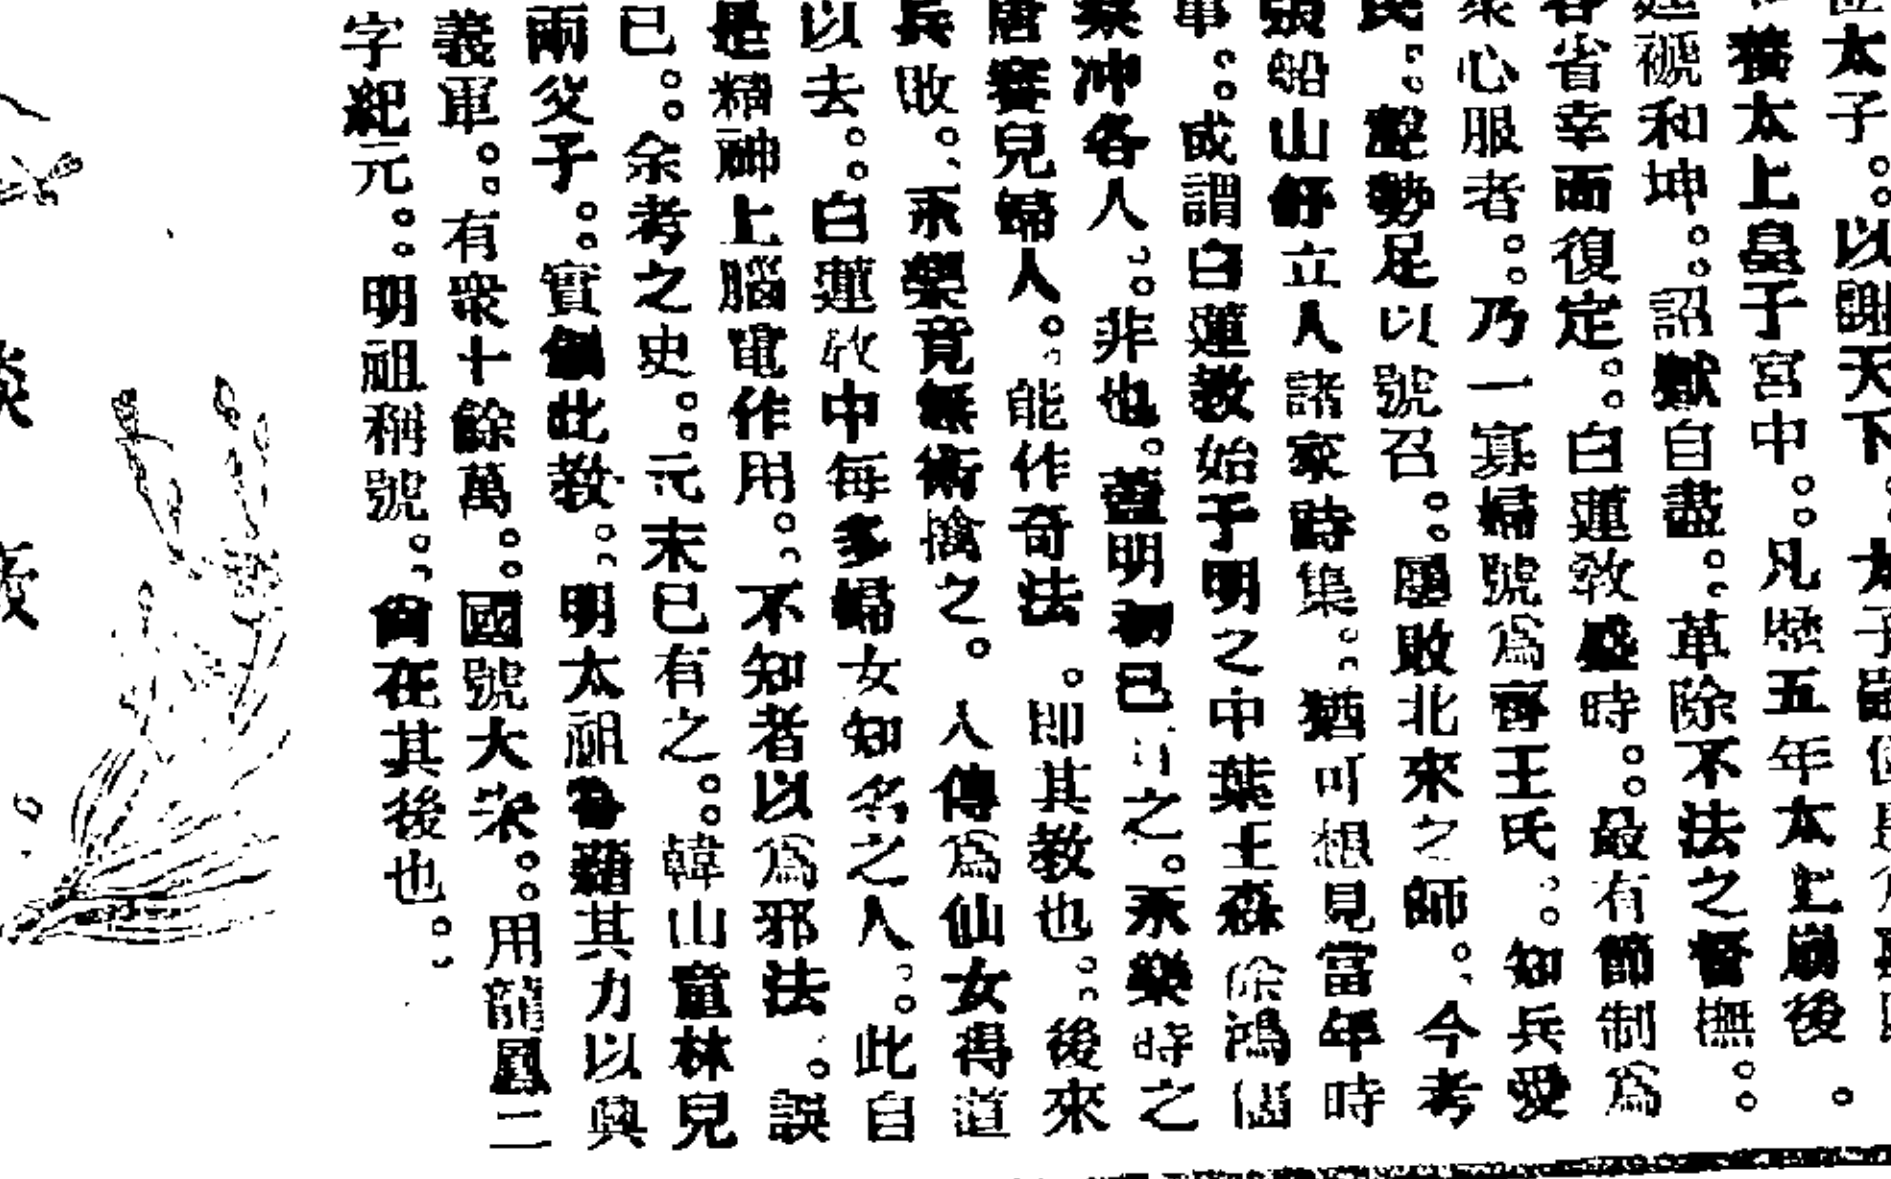 太子。以謝天下。太子
橫太上皇于宮中。凡歷五年太上崩後。
褫和珅。詔獄自盡。革除不法之督撫。
省幸而復定。白蓮敎盛時。最有節制爲
衆心服者。乃一寡婦號爲齊王氏。知兵愛
民。聲勢足以號召。屢敗北來之師。今考
張船山舒立人諸家時集。猶可想見當年時
事。或謂白蓮教始于明之中葉王森徐鴻儒
蔡冲各人。非也。蓋明初已有之。永樂時之
唐賽兒婦人。能作奇法。即其教也。後來
兵敗。永樂竟無術擒之。人傳爲仙女得道
以去。白蓮敎中每多婦女知名之人。此自
是精神上腦電作用。不知者以爲邪法。誤
已。余考之史。元末已有之。韓山童林兒
兩父子。實創此教。明太祖曾藉其力以興
義軍。有衆十餘萬。國號大宋。用龍鳳二
字紀元。明祖稱號。尚在其後也。